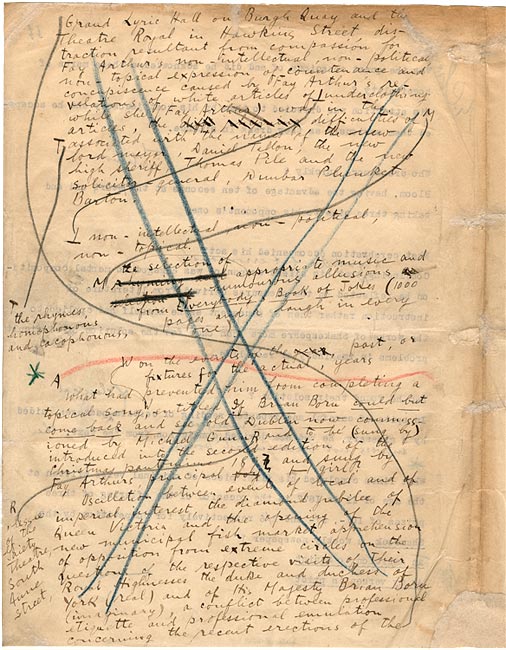 Grand Lyric Hall on Burgh Quay and the
Theatre Royal in Hawkins Street dis-
traction resultant from compassion for
Fay Arthur's non-intellectual, non-political
non-topical expression of countenance and
concupiscence caused by Fay Arthur's re
velations of white articles of underclothing
while she (Fay Arthur) in the
articles, the difficulties
associated with the names of the new
lord mayor, Daniel Tallon, the new
high sheriff, Thomas Pile and the new
solicitor general, Dunbar Plunket
Barton
M
T
I non-intellectual non-political,
non-topical
M the selection of appropriate music and
humourous allusions
from Everybody's Book of Jokes (1000
pages and a laugh in every
one)
T
the rhymes
homophonous
and cacophonous,
W on the events of the past or
fixtures for the actual, years
A
What had prevented him from completing a
topical song If Brian Boru could but
come back and see old Dublin now commiss-
ioned by Michael Gunn R and to be (sung by)
introduced into the second edition of the
Christmas and sung by
Fay Arthur, principal girl?
Oscillation between events of local and of
imperial interest, the diamond jubilee of
Queen Victoria and the opening of the
new municipal fish market apprehension
of opposition from extreme circles on the
question of the respective visits of Their
Royal Highnesses the duke and duchess of
York (real) and of His Majesty Brian Boru
(imaginary), a conflict between professional
etiquette and professional emulation
concerning the recent erections of the
R
of the
Gaiety
Theatre,
South
Anne
street